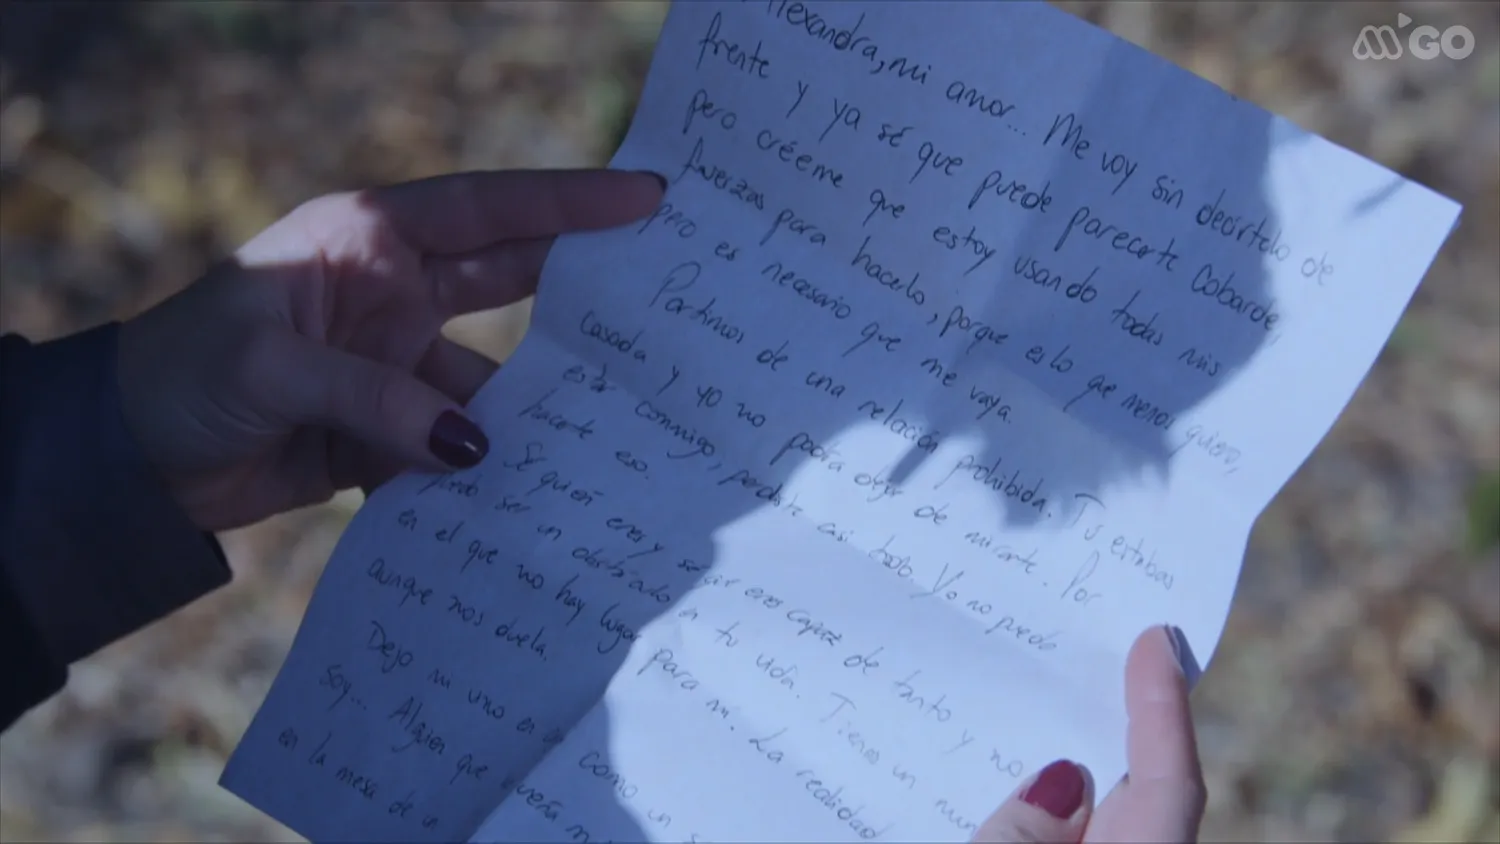 M GO
Alexandra, mi amor... Me voy sin decírtelo de
frente y ya sé que puede parecerte cobarde,
pero créeme que estoy usando todas mis
fuerzas para hacerlo, porque es lo que menos quiero,
pero es necesario que me vaya.
Partimos de una relación prohibida. Tú estabas
casada y yo no podía dejar de mirarte. Por
estar conmigo, perdiste casi todo. Yo no puedo
hacerte eso.
Sé quién eres y sé que eres capaz de tanto y no
puedo ser un obstáculo en tu vida. Tienes un
en el que no hay lugar para mí. La realidad
aunque nos duela.
Dejo mi
soy... Alguien que
en la mesa de
como un